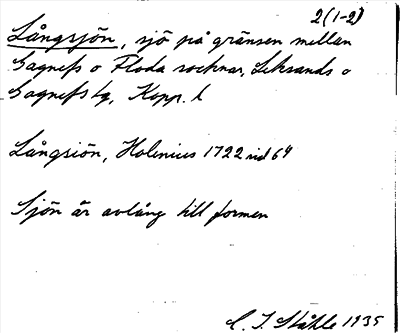 2(1-2)
Långsjön, sjö på gränsen mellan
Gagnefs o Floda socknar, Leksands o
Gagnefs tg, Kopp. l
Långsiön, Holenius 1722 vid 64
Sjön är avlång till formen
C. I. Ståhle 1935